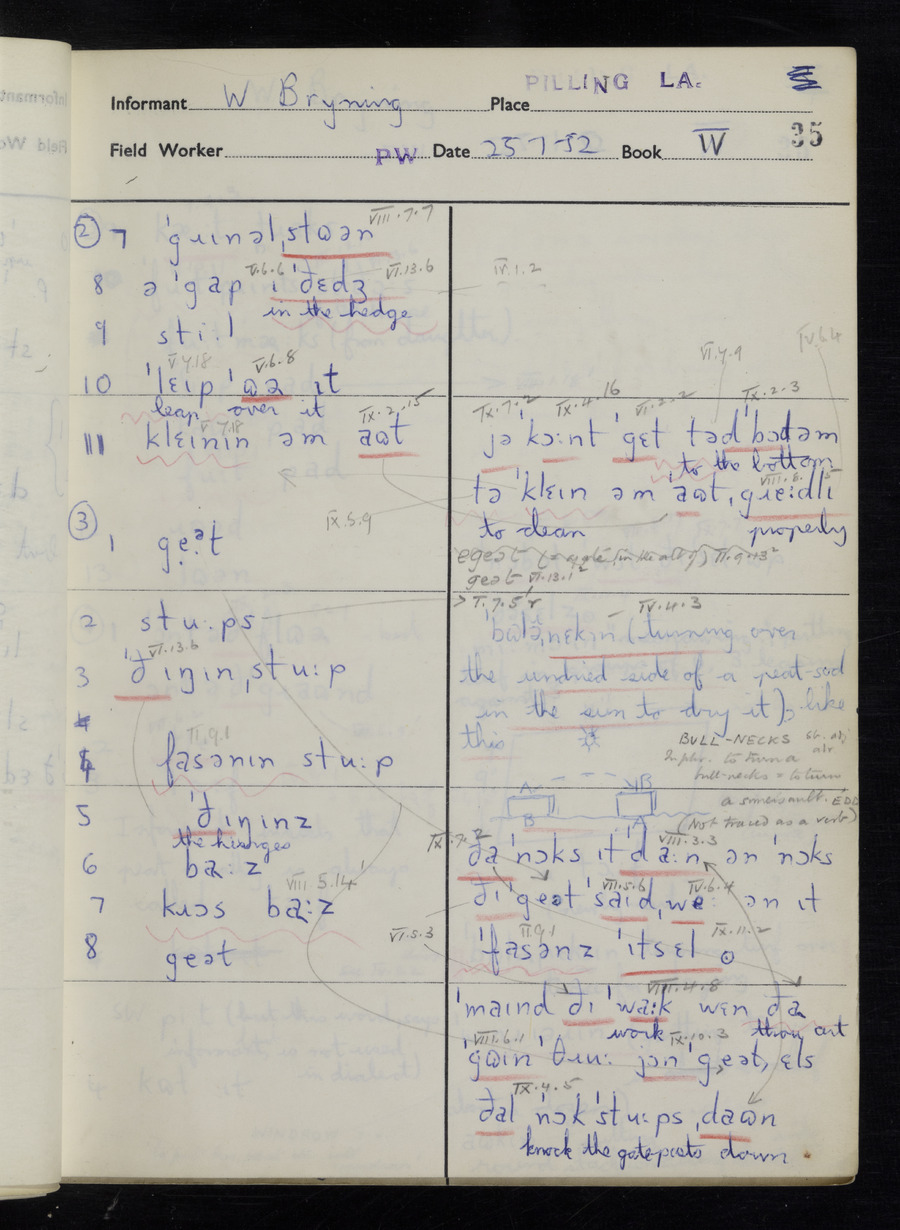 PILLING LA.
Informant W Bryning Place
35
Field Worker PW Date 25-7-52 Book IV
VIII.7.7
② 7 ˈgɹɪnəlˌstɷən
V.6.6 VI.13.6 IV.1.2
8 ə ˈgap i ˈðɛdʒ
in the hedge
9 sti:l
V.6.8
10 ˈlɛɪp ˈɷə ɪt
leap over it
IX.2.15
11 klɛɪnɪn əm aɷt
IX.7.2 IX.4.16 VI.2.2 VI.4.9 IX.2.3
jə kɔ:ɪnt ˈgɛt təd ˈbɔdəm
to the bottom
tə ˈklɛɪn əm ˈaɷt, gɹɛ:dlɪ
to clean properly
IX.5.9
③ 1 geət
geət VI.13.1
I.7.5
2 stu:ps
IV.4.3
(turning over
the undried side of a peat-sod
in the sun to dry it), like
this
BULL-NECKS sb. adj.
2. phr. to turn a
bull-necks = to turn
a somersault. EDD
(Not traced as a verb)
A B
B A
VI.13.6
3 ˈðɪŋɪnˌstu:p
II.9.1
4 fasənɪn stu:p
5 ˈðɪŋɪnz
the hinges
6 ba:z
VIII.5.14
7 kɹɔs ba:z
8 geət
IX.7.2 VIII.3.3
ða ˈnɔks ɪt da:n ən ˈnɔks
VII.5.6 IV.6.4
ðɪ ˈgeət ˈsaɪd, we: ən ɪt
VI.5.3 II.9.1 IX.11.2
ˈfasənz ˈɪtsɛl.
VIII.4.8
ˈmaɪnd ðɪ ˈwa:k wɛn ða
work thou art
VIII.6.1 IX.10.3
ˈgɷɪn ˈθɹu: jɔn ˈgeət, ɛls
IX.4.5
ðal ˈnɔk ˈstu:ps ˌdaɷn
knock the gateposts down